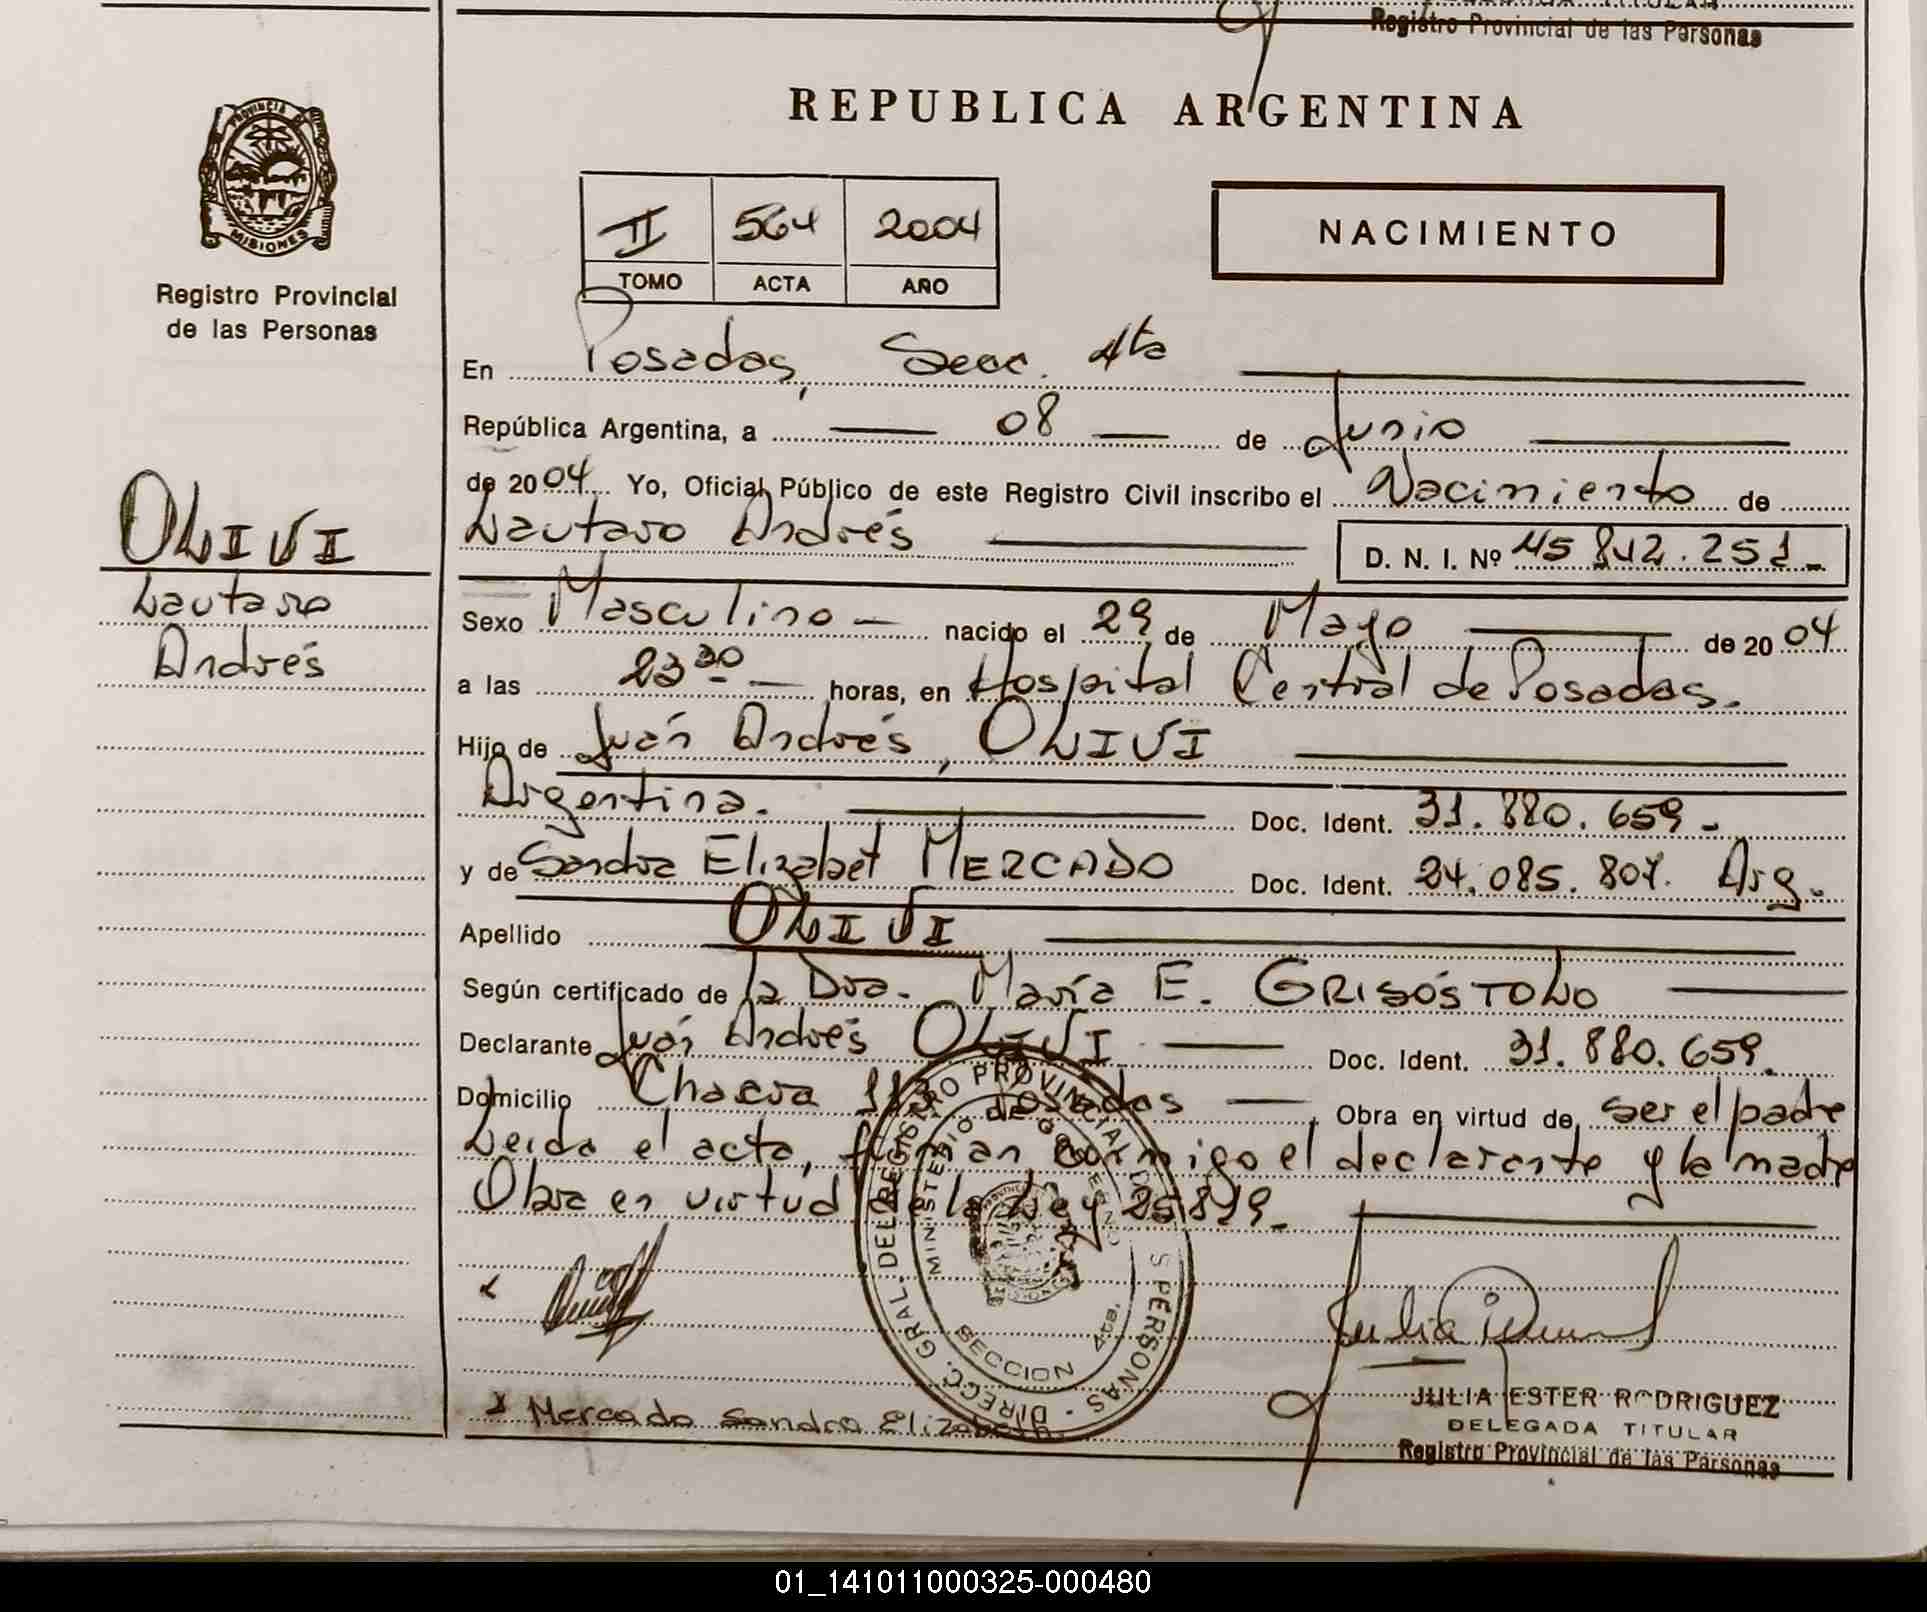 Registro Provincial de las Personas
PROVINCIA DE
MISIONES
Registro Provincial
de las Personas
REPUBLICA ARGENTINA
II 564 2004
TOMO ACTA AÑO
NACIMIENTO
En Posadas, Secc. 4ta
República Argentina, a 08 de Junio
de 2004 Yo, Oficial Público de este Registro Civil inscribo el Nacimiento de
Lautaro Andrés
D. N. I. Nº 45.842.251
OLIVI
Lautaro
Andrés
Sexo Masculino nacido el 29 de Mayo de 2004
a las 23 30 horas, en Hospital Central de Posadas.
Hijo de Juán Andrés, OLIVI
Argentina. Doc. Ident. 31.880.659.
y de Sandra Elizabet MERCADO Doc. Ident. 24.085.807. Arg.
Apellido OLIVI
Según certificado de la Dra. María E. GRISÓSTOMO
Declarante Juán Andrés OLIVI Doc. Ident. 31.880.659.
Domicilio Chacra Posadas Obra en virtud de ser el padre
Leida el acta, firman conmigo el declarante y la madre
Obra en virtud de la Ley
DIRECC. GRAL. DEL REGISTRO PROVINCIAL DE LAS PERSONAS
MINISTERIO DE GOBIERNO
SECCION 4ta.
Mercado Sandra Elizabeth
JULIA ESTER RODRIGUEZ
DELEGADA TITULAR
Registro Provincial de las Personas
01_141011000325-000480